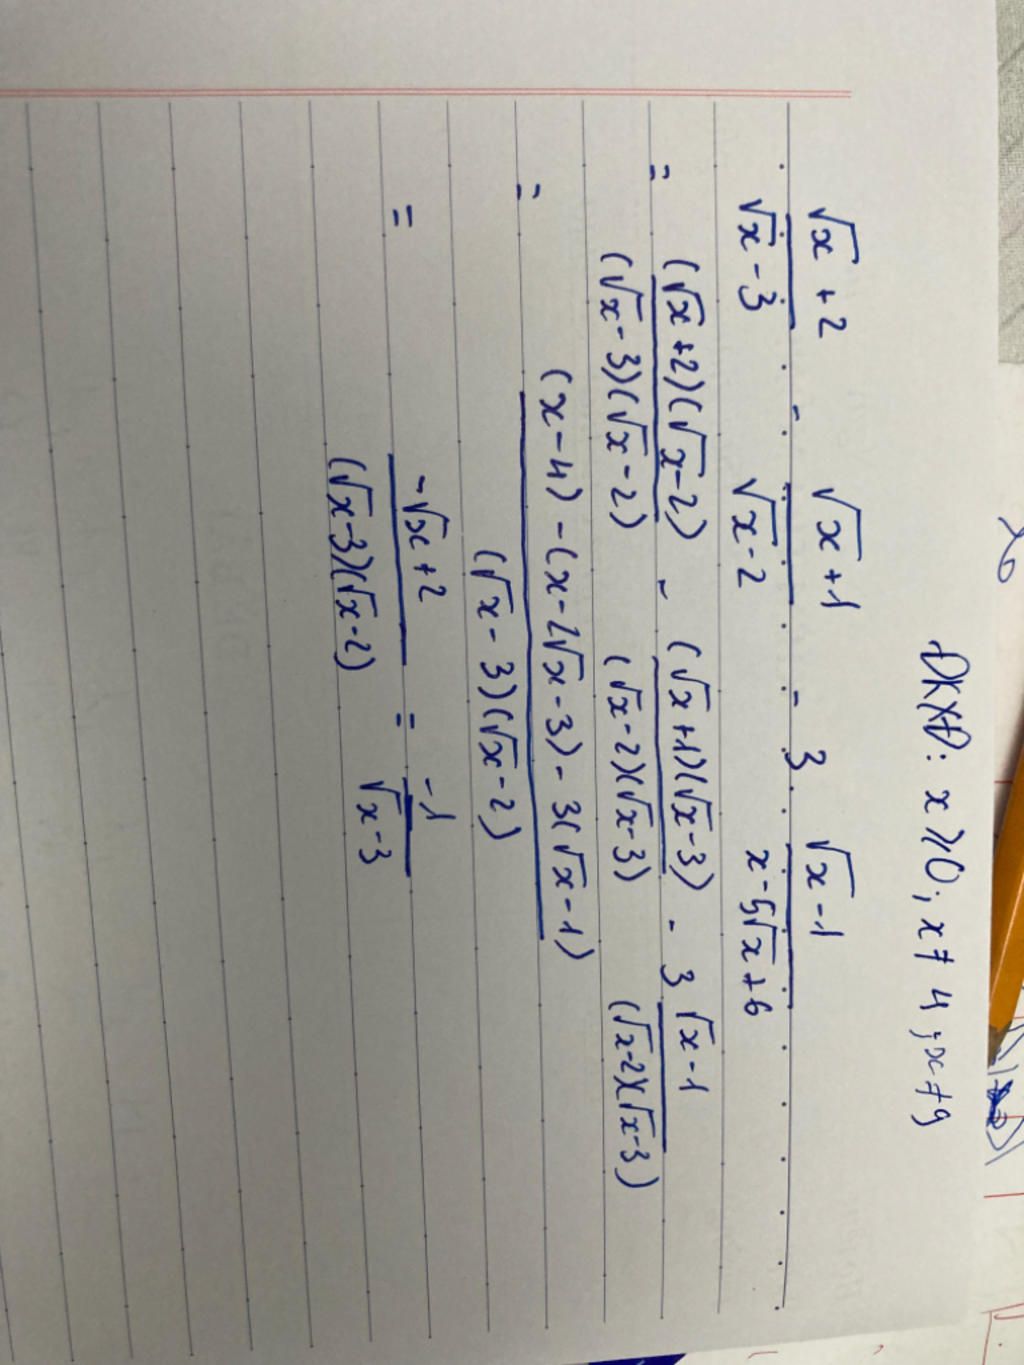 ĐKXĐ: x ≥ 0; x ≠ 4; x ≠ 9
(√x + 2)/(√x - 3) - (√x + 1)/(√x - 2) - 3 (√x - 1)/(x - 5√x + 6)
= ((√x + 2)(√x - 2))/((√x - 3)(√x - 2)) - ((√x + 1)(√x - 3))/((√x - 2)(√x - 3)) - 3 (√x - 1)/((√x - 2)(√x - 3))
= ((x - 4) - (x - 2√x - 3) - 3(√x - 1))/((√x - 3)(√x - 2))
= (-√x + 2)/((√x - 3)(√x - 2)) = -1/(√x - 3)